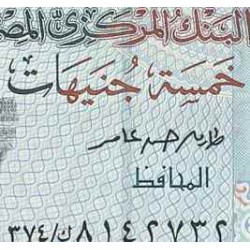 البنك المركزى المصـ
خمسة جنيهات
طارق حسن عامر
المحافظ
٣٧٤/ك ٨١٤٢٧٣٢